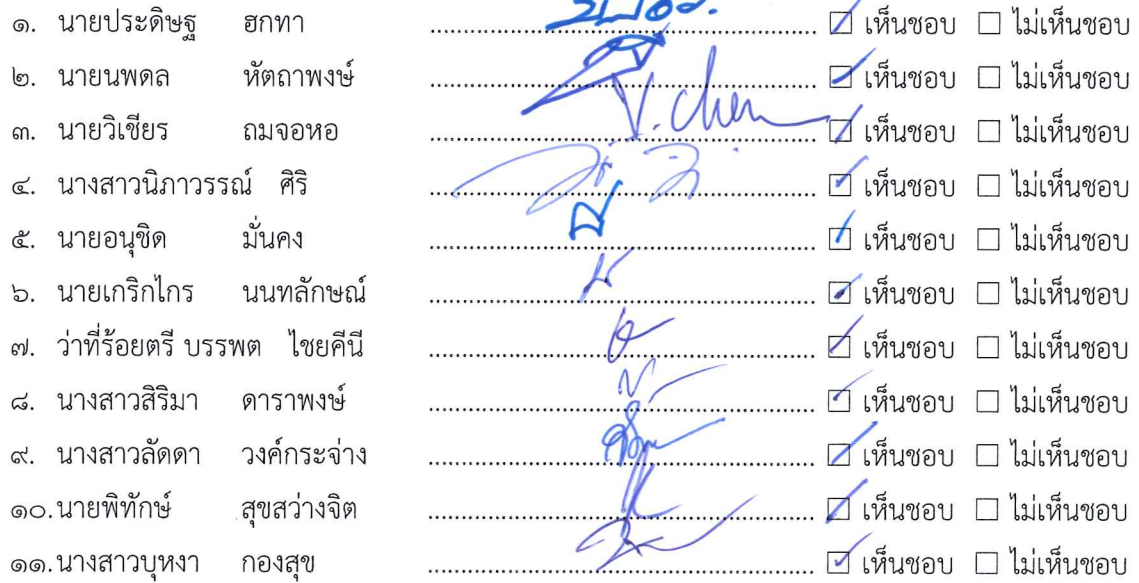 ๑. นายประดิษฐ ฮกทา ☑ เห็นชอบ ☐ ไม่เห็นชอบ
๒. นายนพดล หัตถาพงษ์ ☑ เห็นชอบ ☐ ไม่เห็นชอบ
๓. นายวิเชียร ถมจอหอ V. Chen ☑ เห็นชอบ ☐ ไม่เห็นชอบ
๔. นางสาวนิภาวรรณ์ ศิริ ☑ เห็นชอบ ☐ ไม่เห็นชอบ
๕. นายอนุชิด มั่นคง ☑ เห็นชอบ ☐ ไม่เห็นชอบ
๖. นายเกริกไกร นนทลักษณ์ ☑ เห็นชอบ ☐ ไม่เห็นชอบ
๗. ว่าที่ร้อยตรี บรรพต ไชยคีนี ☑ เห็นชอบ ☐ ไม่เห็นชอบ
๘. นางสาวสิริมา ดาราพงษ์ ☑ เห็นชอบ ☐ ไม่เห็นชอบ
๙. นางสาวลัดดา วงค์กระจ่าง ☑ เห็นชอบ ☐ ไม่เห็นชอบ
๑๐.นายพิทักษ์ สุขสว่างจิต ☑ เห็นชอบ ☐ ไม่เห็นชอบ
๑๑.นางสาวบุหงา กองสุข ☑ เห็นชอบ ☐ ไม่เห็นชอบ